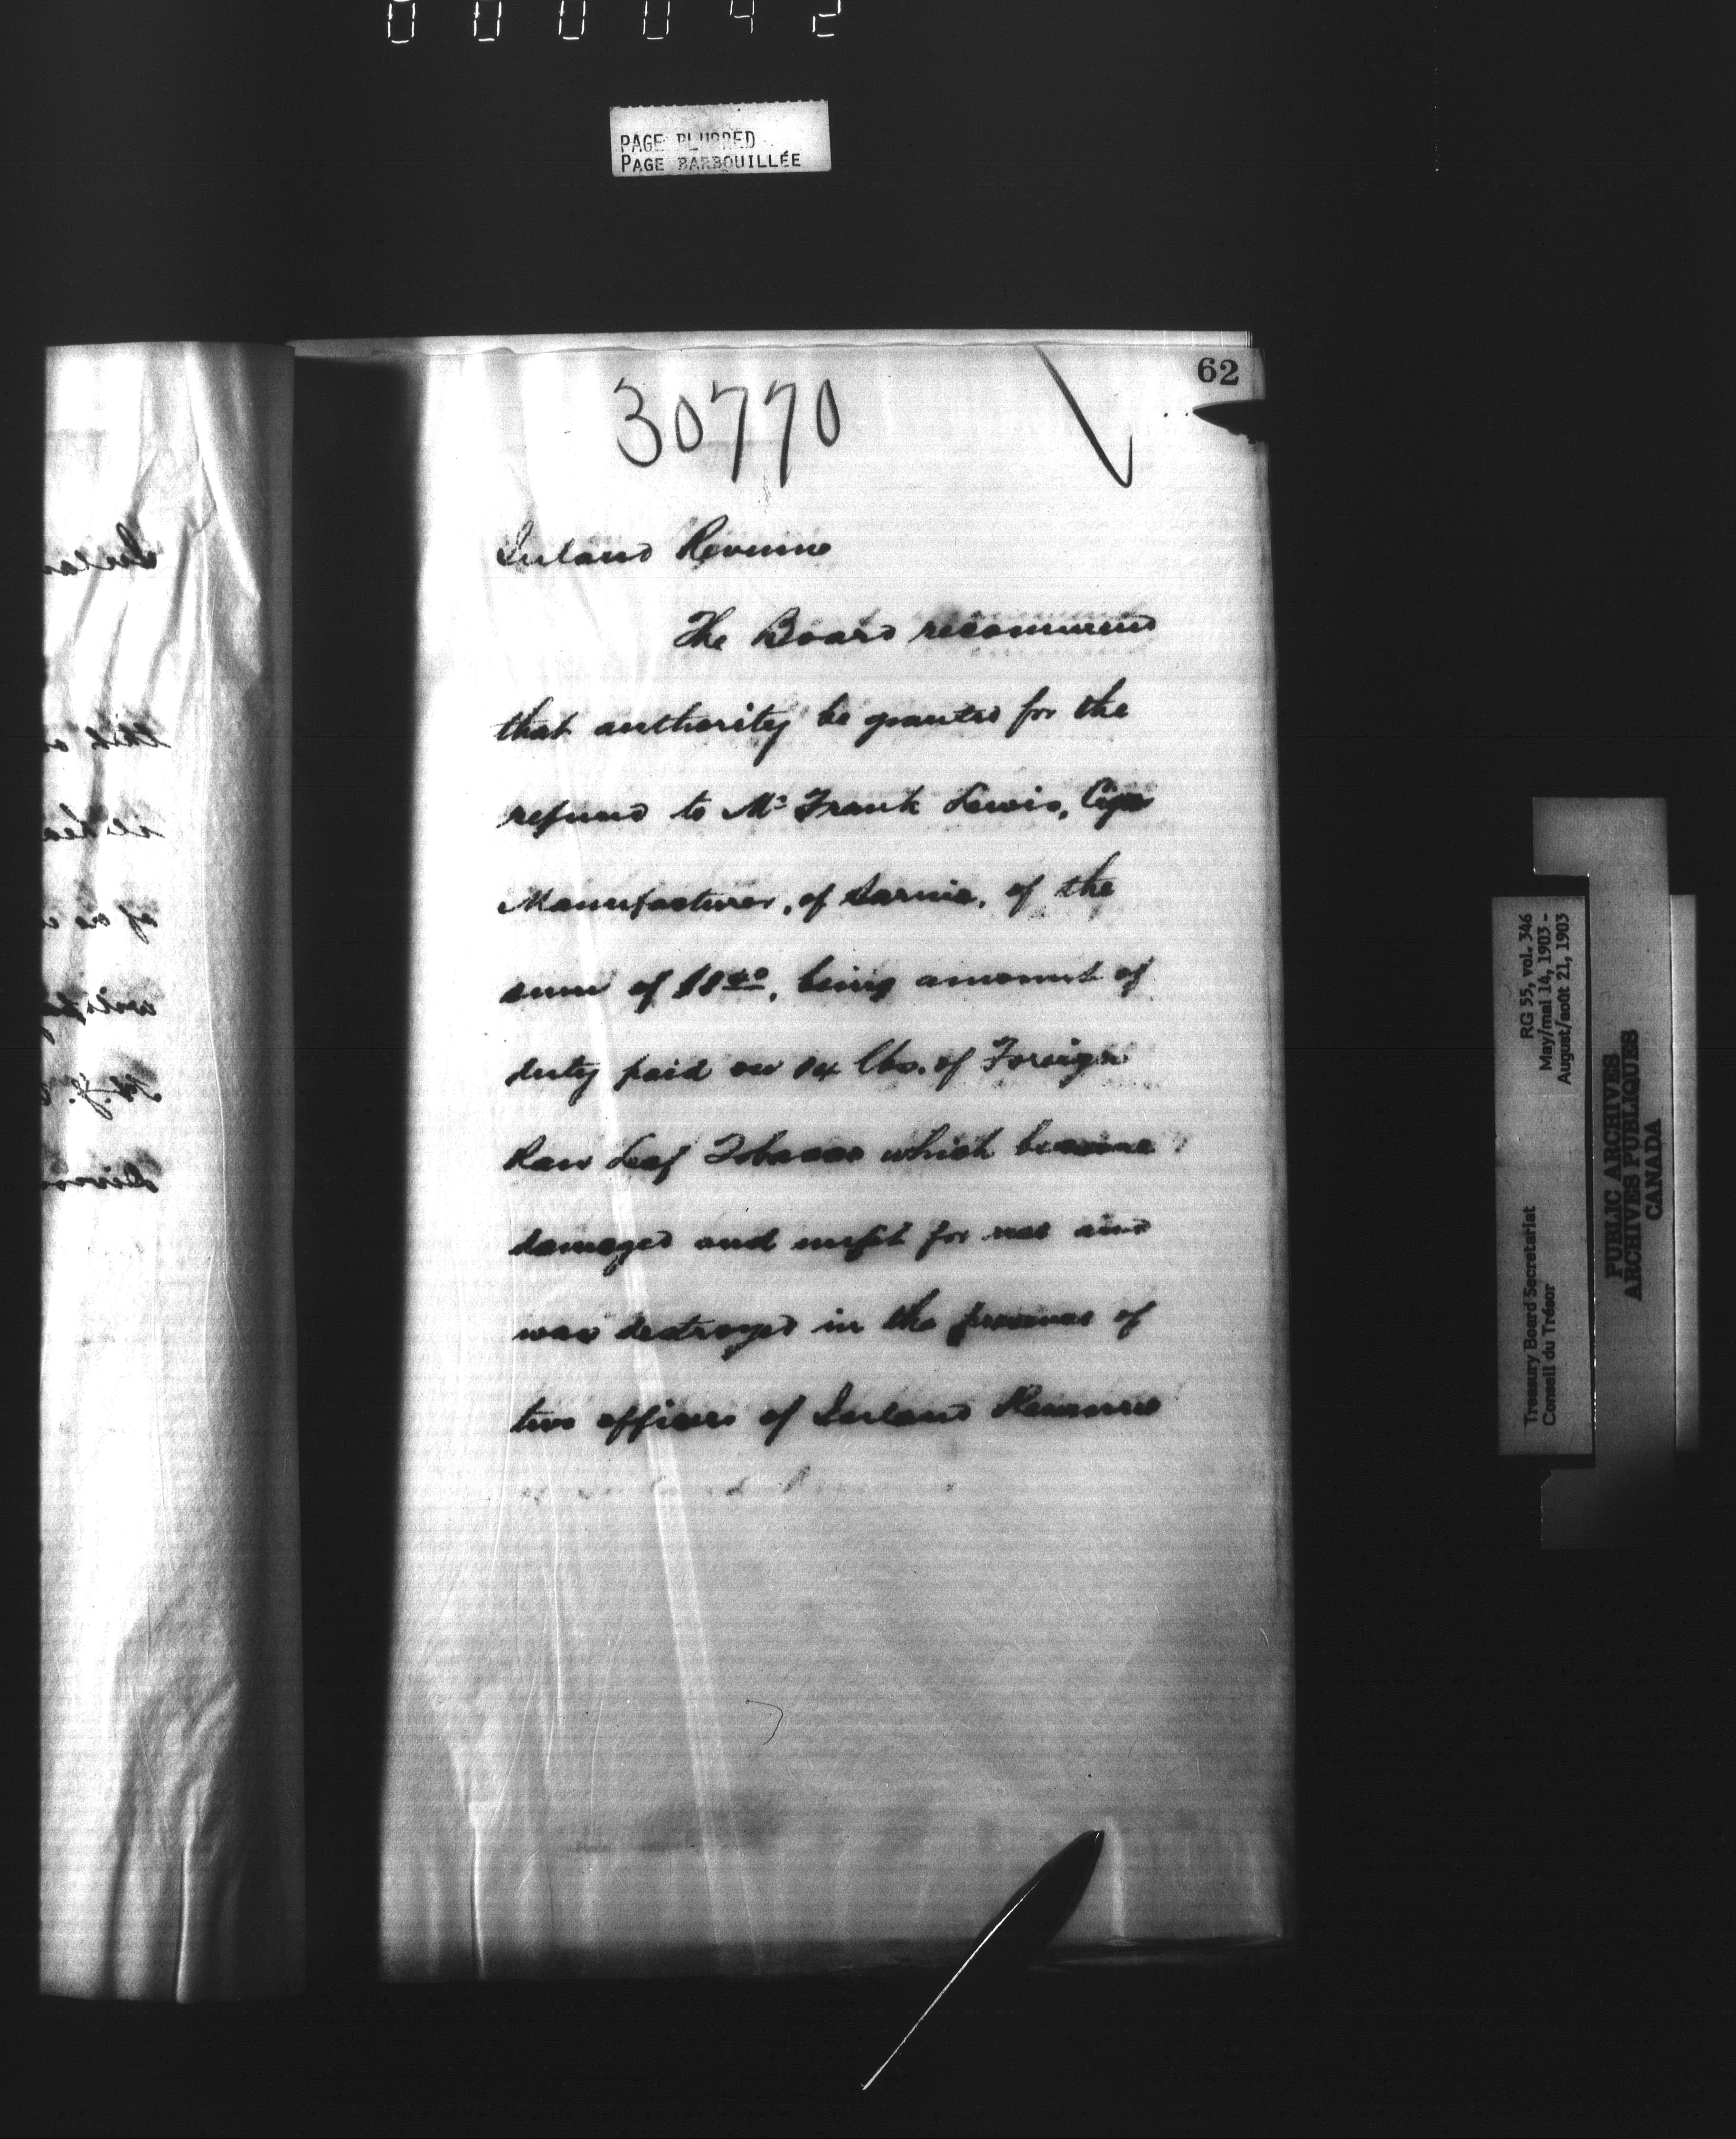 000042
PAGE BLURRED
PAGE BARBOUILLÉE
62
30770
Inland Revenue
The Board recommend
that authority be granted for the
refund to Mr Frank Lewis, Cigar
Manufacturer, of Sarnia, of the
sum of $8 40, being amount of
duty paid on 14 lbs. of Foreign
Raw Leaf Tobacco which became
damaged and unfit for use and
was destroyed in the presence of
two officers of Inland Revenue
RG 55, vol. 346
May/mai 14, 1903 -
August/août 21, 1903
Treasury Board Secretariat
Conseil du Trésor
PUBLIC ARCHIVES
ARCHIVES PUBLIQUES
CANADA